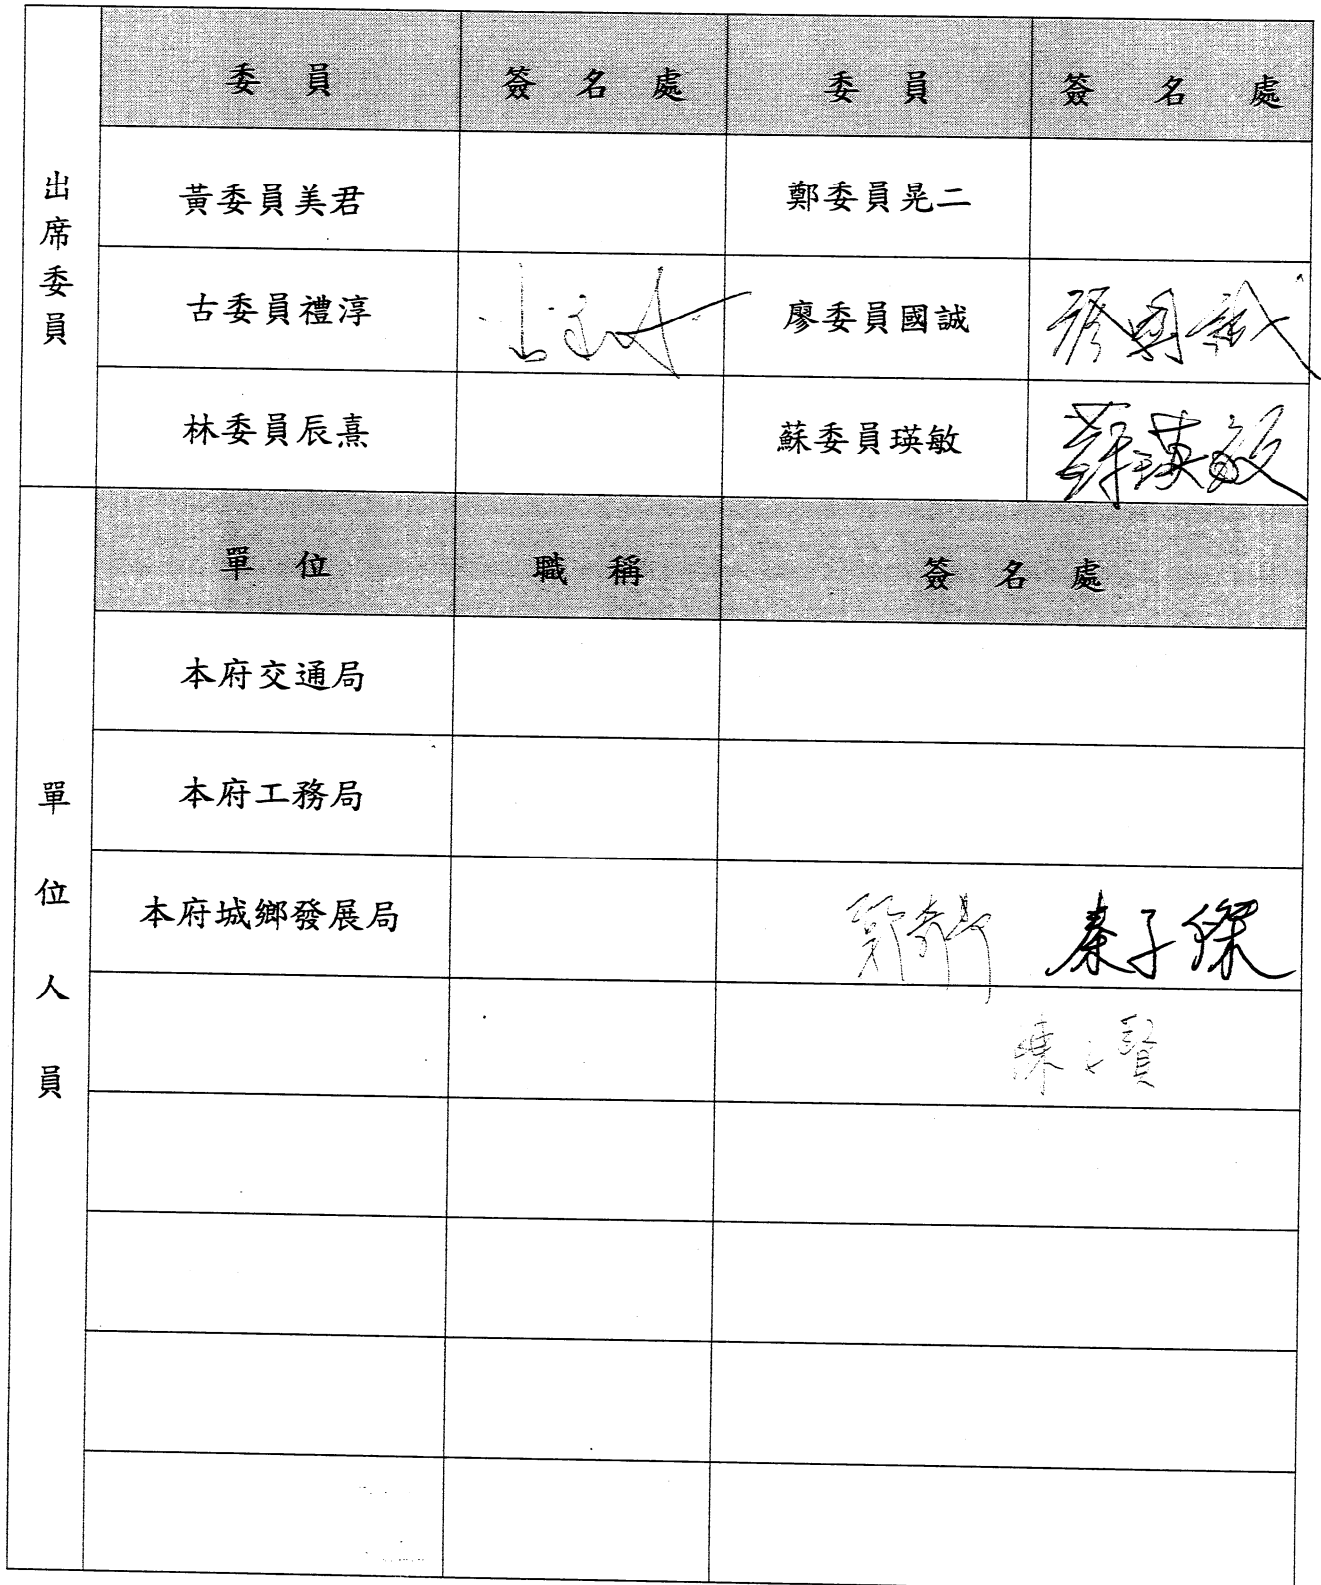 出席委員
委員 簽名處 委員 簽名處
黃委員美君 鄭委員晃二
古委員禮淳 廖委員國誠 廖國誠
林委員辰熹 蘇委員瑛敏 蘇瑛敏
單位人員
單位 職稱 簽名處
本府交通局
本府工務局
本府城鄉發展局 秦子傑